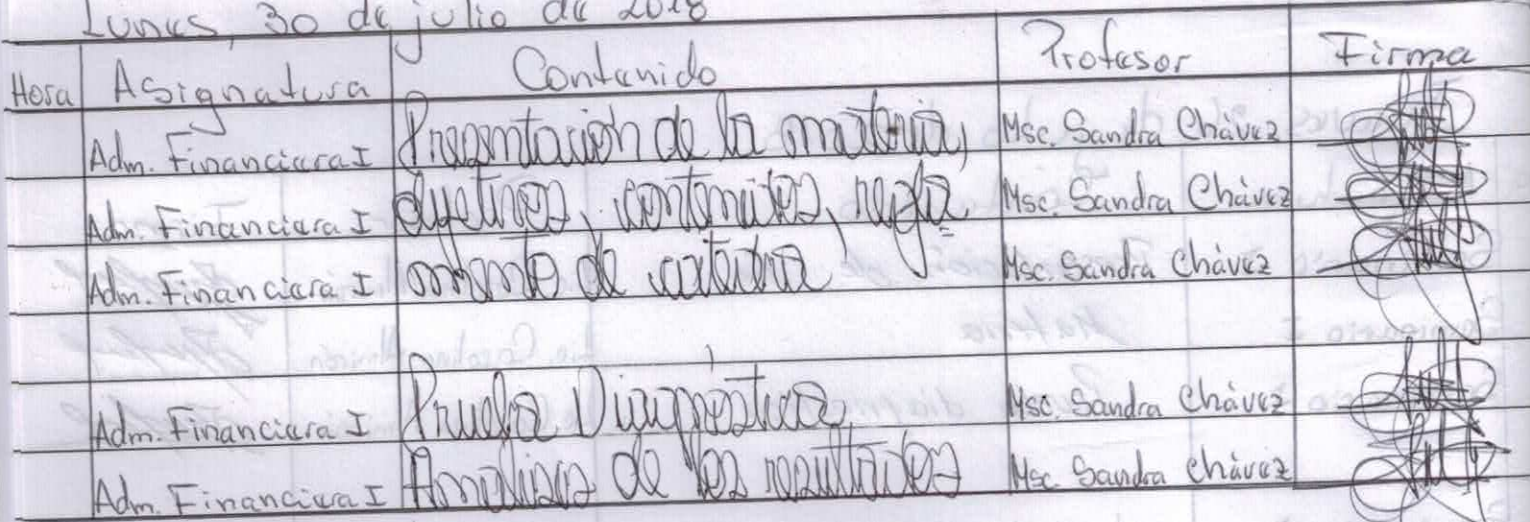 Lunes, 30 de julio de 2018
Hora Asignatura Contenido Profesor Firma
Adm. Financiera I Presentación de la materia, Msc. Sandra Chávez
Adm. Financiera I objetivos, contenidos, regla Msc. Sandra Chávez
Adm. Financiera I mento de cátedra Msc. Sandra Chávez
Adm. Financiera I Prueba Diagnóstica Msc. Sandra Chávez
Adm. Financiera I Análisis de los resultados Msc. Sandra Chávez